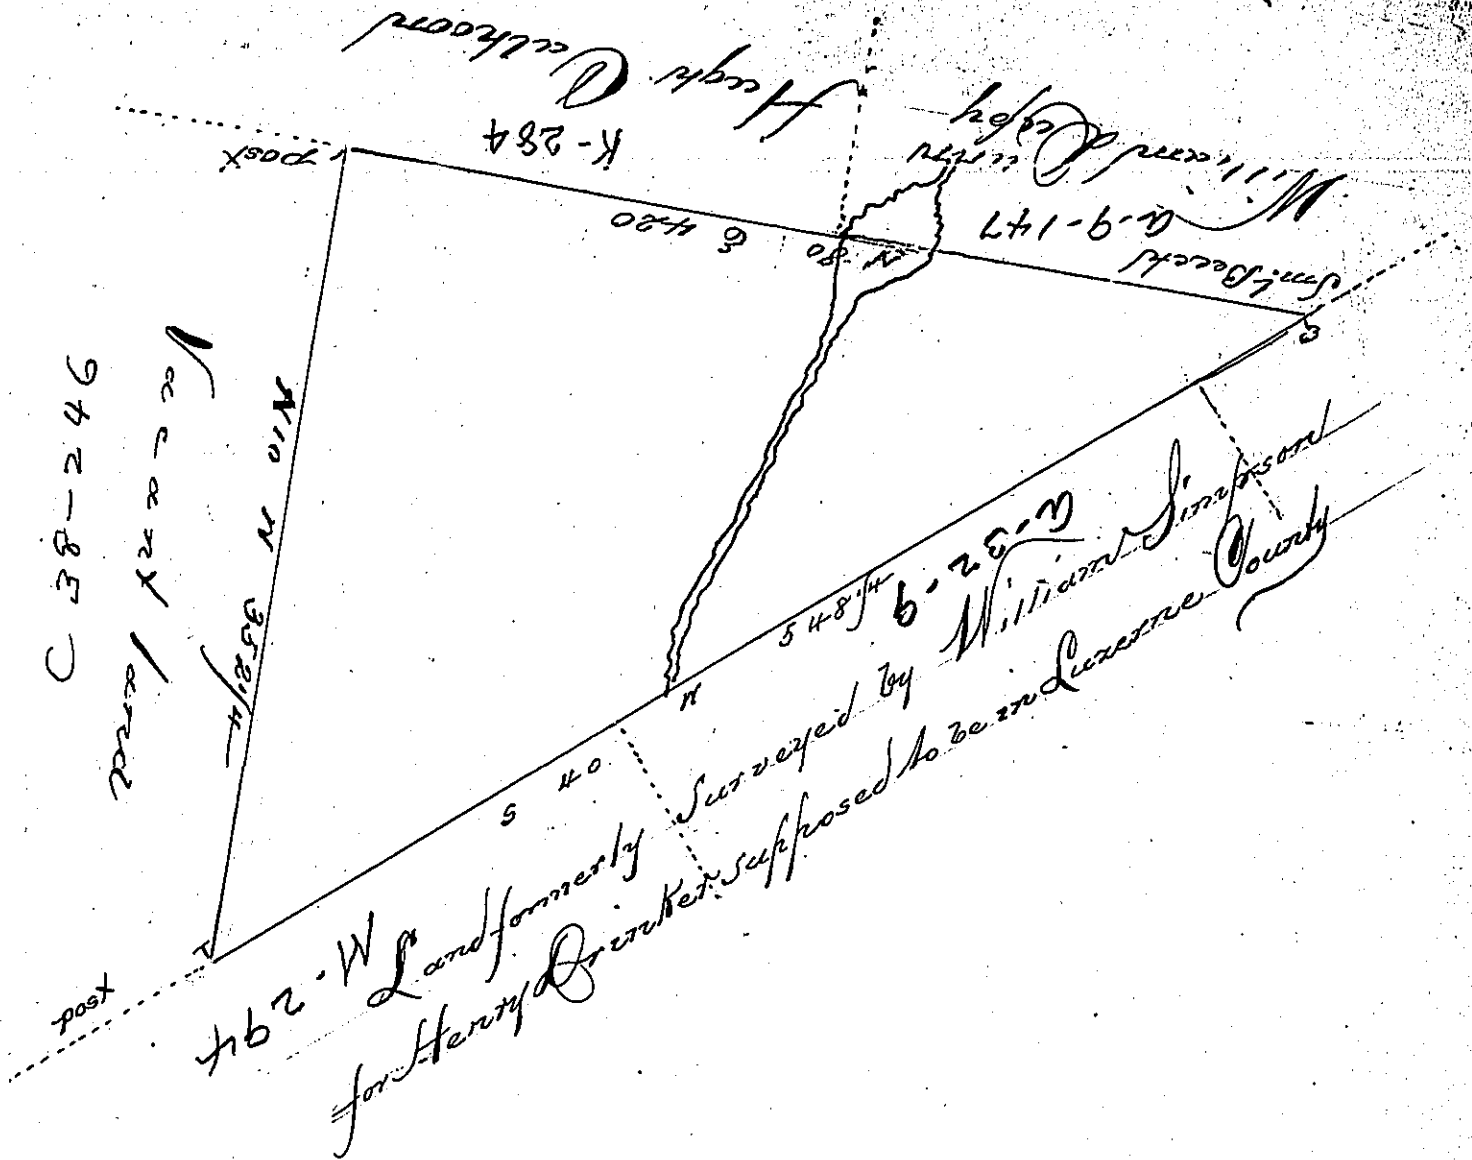 Hugh Calhoon
K-284
William Lupy
a-9-147
Sml Beech
post
N 80 E 420
C 38-246
Vacant land
N 10 W 352 1/4
S 40 W 548 1/4
a-32-9
M-294
Land formerly Surveyed by William Simpson
for Henry Drinker supposed to be in Luzerne County
post